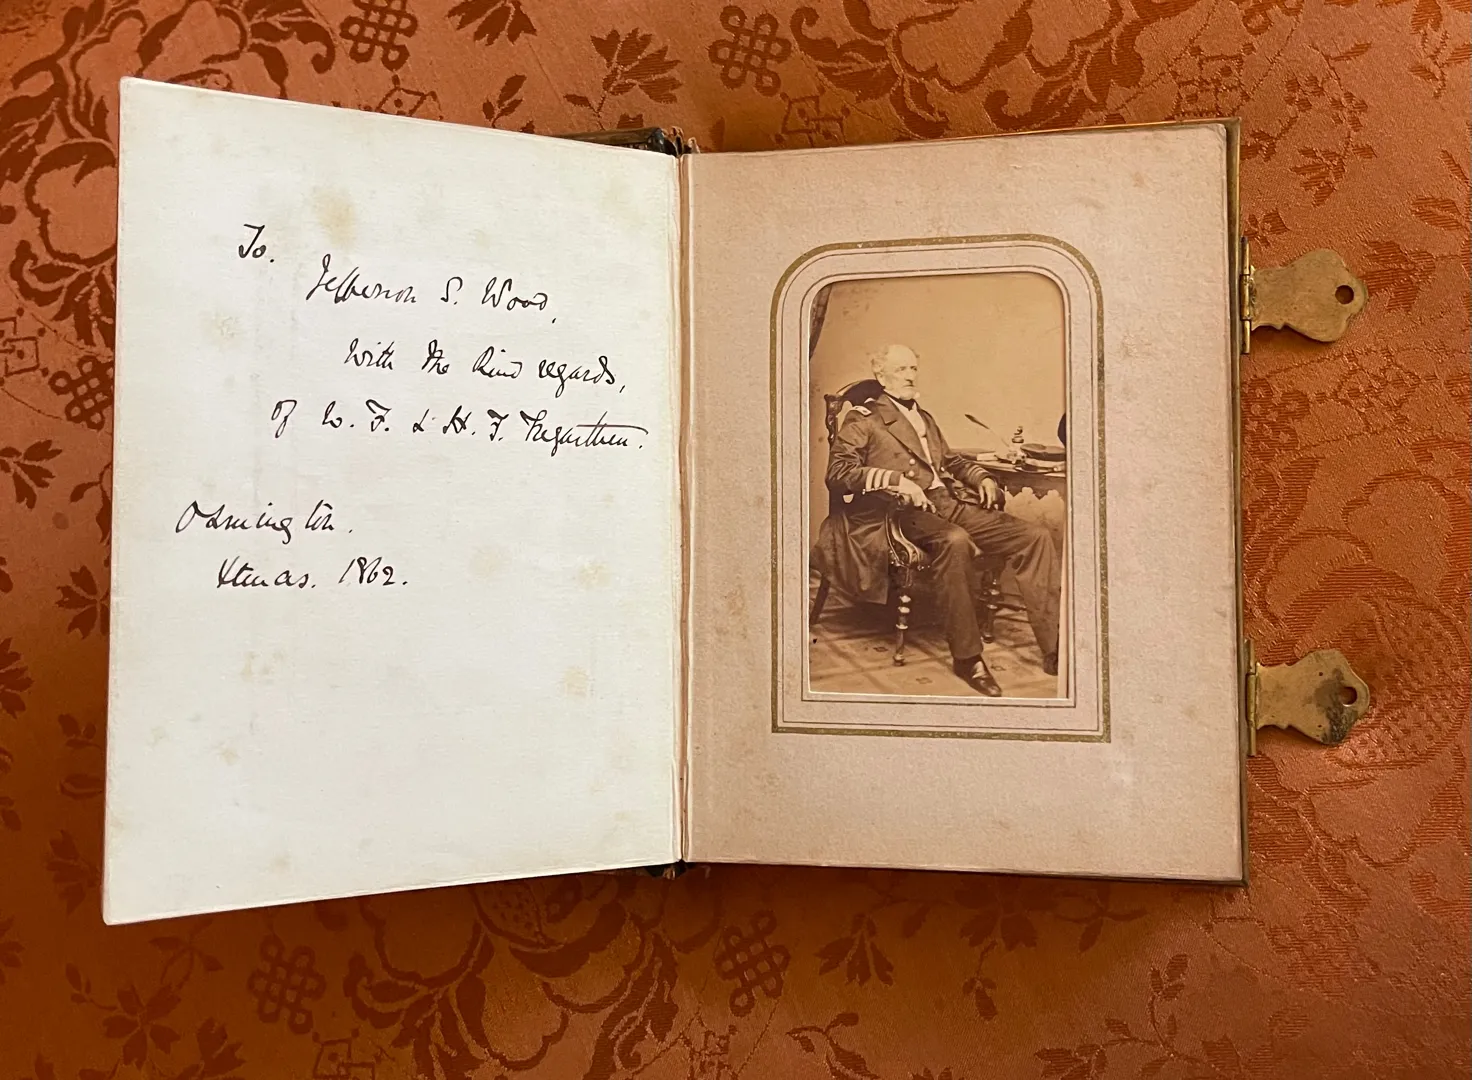 To.
Jefferson S. Wood,
With the kind regards,
of W. F. & H. F. Tregarthen.
Xmas. 1862.